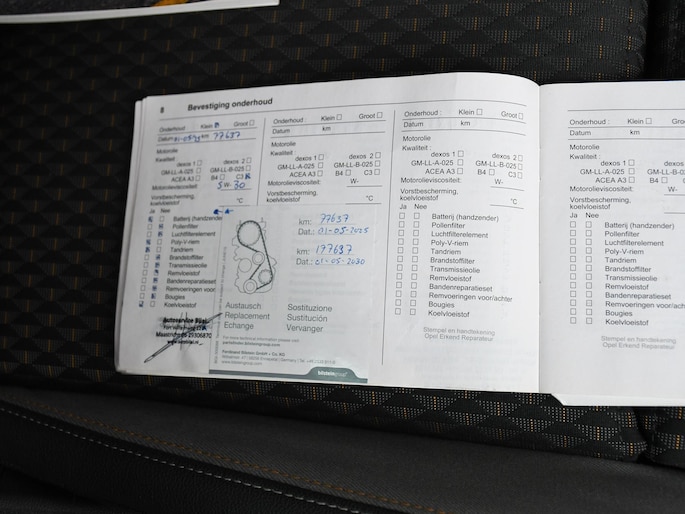 8 Bevestiging onderhoud
Onderhoud : Klein Groot
Datum: km 77637
Motorolie
Kwaliteit :
dexos 1 dexos 2
GM-LL-A-025 GM-LL-B-025
ACEA A3 B4 C3
Motorolieviscositeit: 5 W- 30
Vorstbescherming,
koelvloeistof °C
Ja Nee
Batterij (handzender)
Pollenfilter
Luchtfilterelement
Poly-V-riem
Tandriem
Brandstoffilter
Transmissieolie
Remvloeistof
Bandenreparatieset
Remvoeringen voor
Bougies
Koelvloeistof
Autoservice
Maastricht
Onderhoud : Klein Groot
Datum km
Motorolie
Kwaliteit :
dexos 1 dexos 2
GM-LL-A-025 GM-LL-B-025
ACEA A3 B4 C3
Motorolieviscositeit: W-
Vorstbescherming,
koelvloeistof °C
km: 77637
Dat.: 01-05-2025
km: 177637
Dat.: 01-05-2030
Austausch Sostituzione
Replacement Sustitución
Echange Vervanger
For more technical information please visit:
partsfinder.bilsteingroup.com
Ferdinand Bilstein GmbH + Co. KG
bilsteingroup
Onderhoud : Klein Groot
Datum km
Motorolie
Kwaliteit :
dexos 1 dexos 2
GM-LL-A-025 GM-LL-B-025
ACEA A3 B4 C3
Motorolieviscositeit: W-
Vorstbescherming,
koelvloeistof °C
Ja Nee
Batterij (handzender)
Pollenfilter
Luchtfilterelement
Poly-V-riem
Tandriem
Brandstoffilter
Transmissieolie
Remvloeistof
Bandenreparatieset
Remvoeringen voor/achter
Bougies
Koelvloeistof
Stempel en handtekening
Opel Erkend Reparateur
Onderhoud : Klein
Datum km
Motorolie
Kwaliteit :
dexos 1
GM-LL-A-025 GM-LL-B
ACEA A3 B4
Motorolieviscositeit: W-
Vorstbescherming,
koelvloeistof
Ja Nee
Batterij (handzender)
Pollenfilter
Luchtfilterelement
Poly-V-riem
Tandriem
Brandstoffilter
Transmissieolie
Remvloeistof
Bandenreparatieset
Remvoeringen voor/achter
Bougies
Koelvloeistof
Stempel en handtekening
Opel Erkend Reparateur